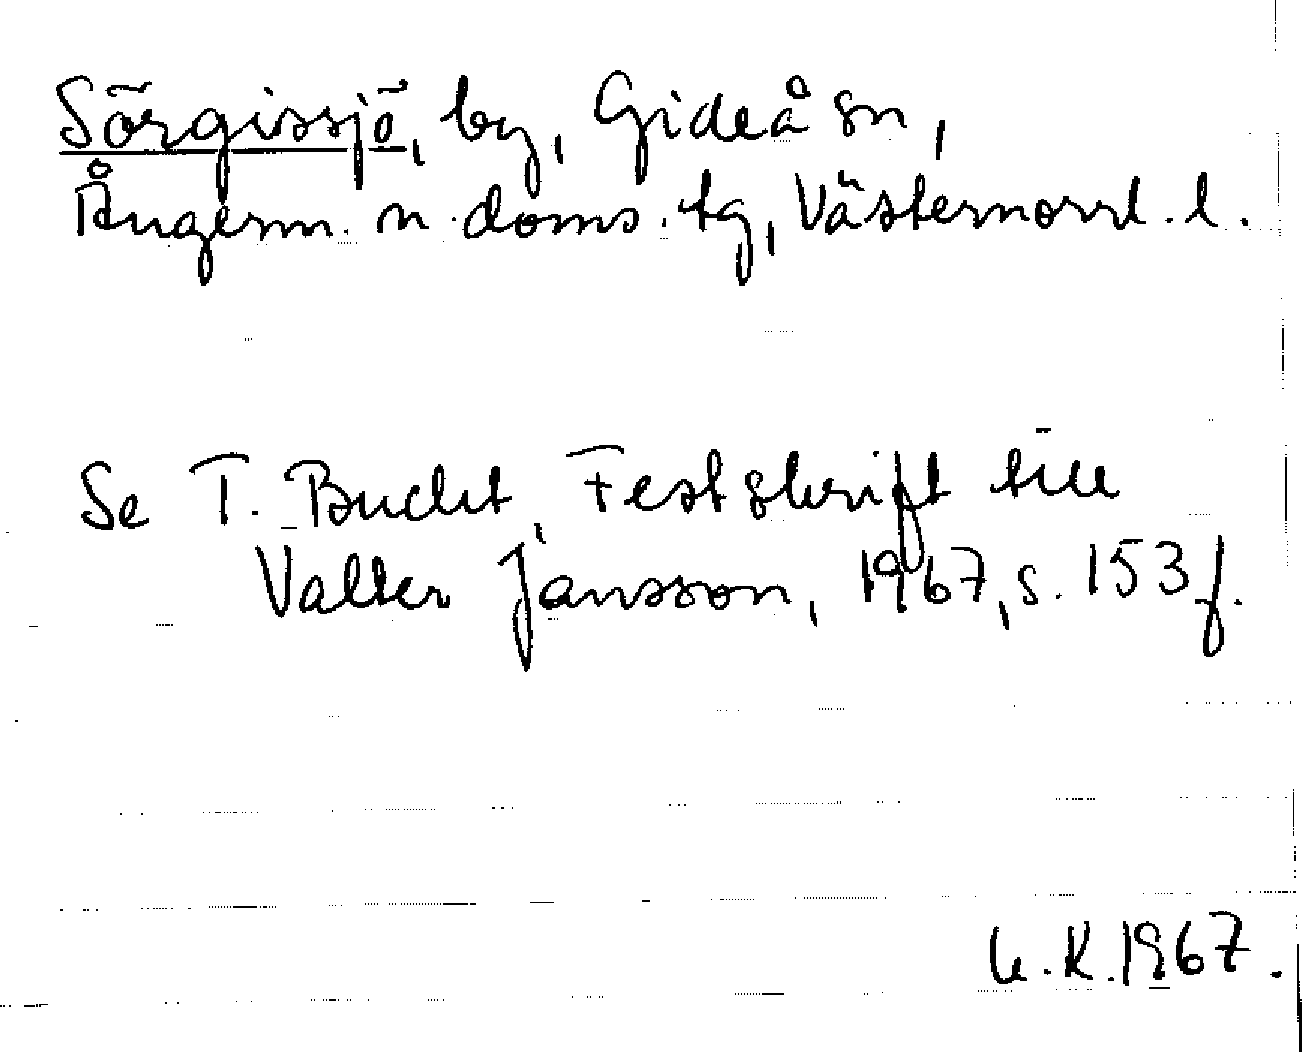 Sörgissjö, by, Gideå sn,
Ångerm. n. doms. tg, Västernorrl. l.
Se T. Bucht, Festskrift till
Valter Jansson, 1967, s. 153 f.
U.K. 1967.